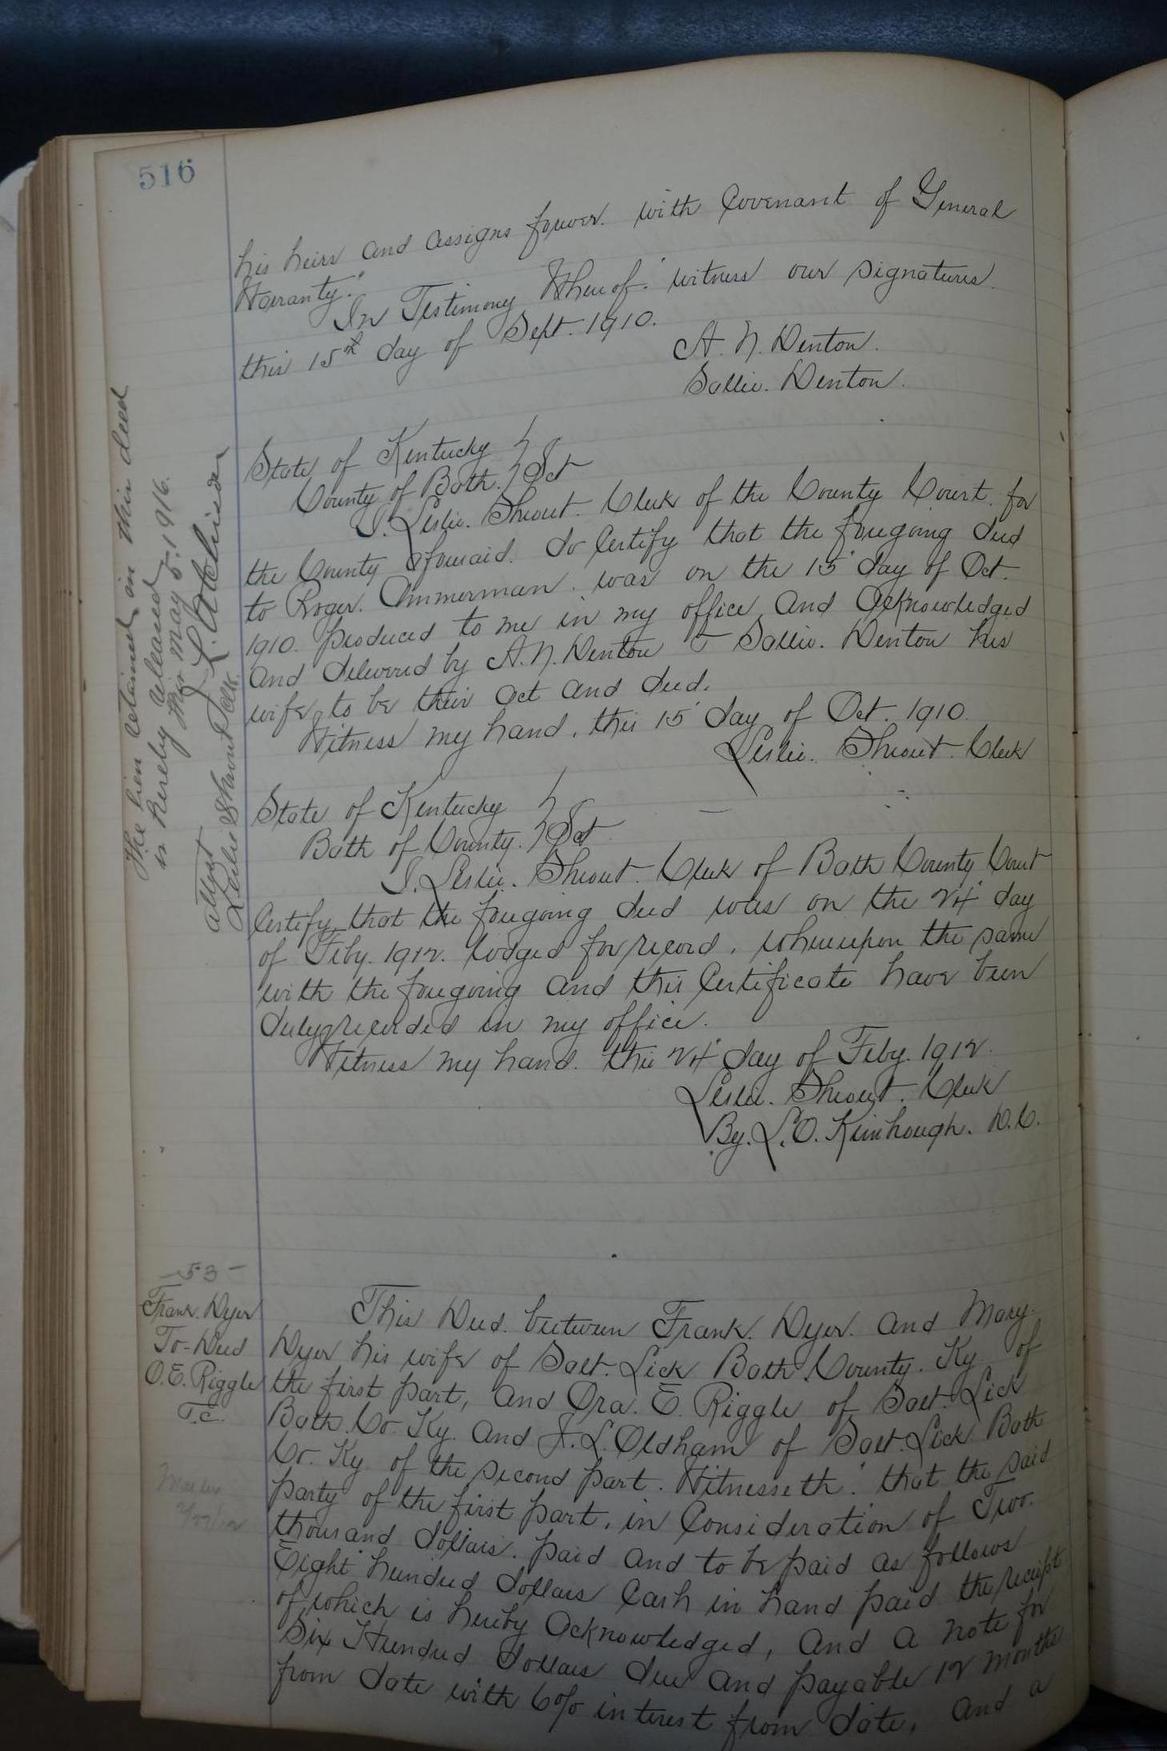 516
his heirs and assigns forever. with Covenant of General
Warranty."
In Testimony Whereof. witness our signatures.
this 15th day of Sept. 1910.
A. N. Denton.
Sallie. Denton.
State of Kentucky
County of Bath. Sct
I. Leslie. Shrout. Clerk of the County Court. for
the County aforesaid. do Certify that the foregoing deed
to Roger. Ammerman. was on the 15" day of Oct.
1910. produced to me in my office, and acknowledged
and delivered by A. N. Denton & Sallie. Denton his
wife, to be their act and deed.
Witness my hand, this 15" day of Oct. 1910.
Leslie. Shrout. Clerk
State of Kentucky
Bath of County. Sct
I. Leslie. Shrout. Clerk of Bath County Court
Certify that the foregoing deed was on the 24" day
of Feby. 1912. lodged for record, whereupon the same
with the foregoing and this Certificate have been
duly recorded in my office.
Witness my hand. this 24" day of Feby. 1912.
Leslie. Shrout. Clerk
By. L. O. Kimbough. D. C.
The lien retained in this deed
is hereby released
this May 5. 1916.
Attest
Leslie Shrout Clk.
-53-
Frank. Dyer
To-Deed
O. E. Riggle
T.C.
This Deed. between Frank. Dyer. and Mary.
Dyer his wife of Salt. Lick Bath County. Ky. of
the first part, and Ora. E. Riggle of Salt. Lick
Bath. Co. Ky. and J. L. Oldham of Salt. Lick Bath
Co. Ky. of the second part. Witnesseth: that the said
party of the first part, in Consideration of Two.
thousand dollars. paid and to be paid as follows
Eight hundred dollars Cash in hand paid the receipt
of which is hereby acknowledged, and a note for
Six Hundred Dollars due and payable 12 months
from date with 6% interest from date, and a